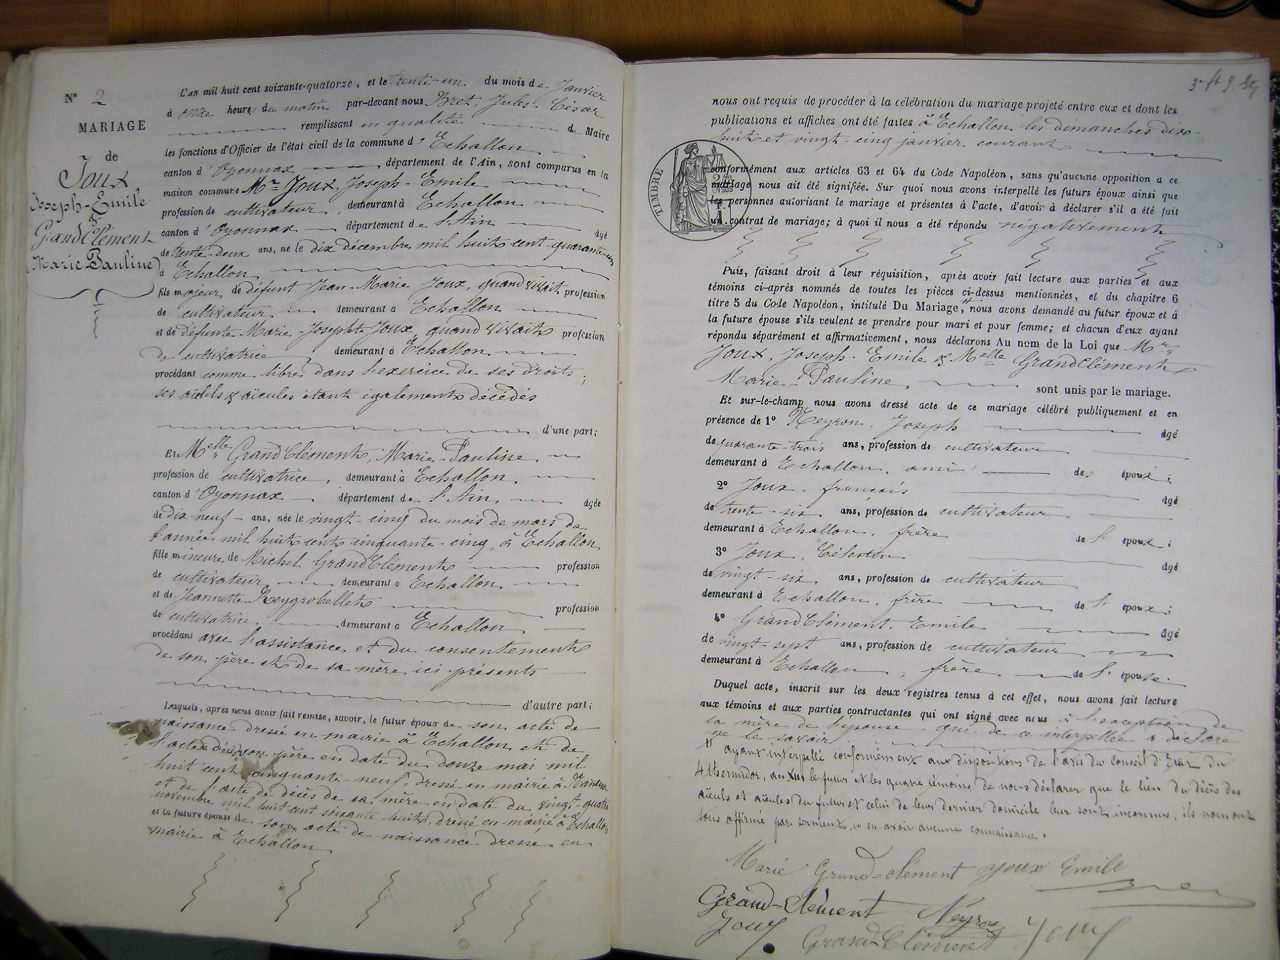 N° 2
MARIAGE
de
Joux
Joseph-Emile
&
GrandClément
Marie Pauline
L'an mil huit cent soixante-quatorze, et le trente-un du mois de Janvier
à onze heures du matin par-devant nous Bret, Jules-César
remplissant en qualité de Maire
les fonctions d'Officier de l'état civil de la commune d'Echallon
canton d'Oyonnax, département de l'Ain, sont comparus en la
maison commune Mr Joux, Joseph-Emile
profession de cultivateur, demeurant à Echallon
canton d'Oyonnax département de l'Ain âgé
de trente-deux ans, né le dix décembre mil huit cent quarante-un
à Echallon
fils majeur de défunt Jean-Marie Joux, quand vivait profession
de cultivateur demeurant à Echallon
et de défunte Marie Josephte Joux, quand vivait profession
de cultivatrice, demeurant à Echallon
procédant comme libre dans l'exercice de ses droits;
ses aïeuls & aïeules étant également décédés
d'une part;
Et Melle GrandClément, Marie-Pauline
profession de cultivatrice, demeurant à Echallon
canton d'Oyonnax département de l'Ain âgée
de dix-neuf ans, née le vingt-cinq du mois de mars de
l'année mil huit cent cinquante-cinq, à Echallon
fille mineure de Michel GrandClément profession
de cultivateur demeurant à Echallon
et de Jeannette profession
de cultivatrice demeurant à Echallon
procédant avec l'assistance et du consentement
de son père et de sa mère ici présents
d'autre part;
Lesquels, après nous avoir fait remise, savoir, le futur époux de son acte de
naissance dressé en mairie à Echallon et de
l'acte décès père en date du douze mai mil
huit cent cinquante-neuf, dressé en mairie à
et de l'acte de décès de sa mère en date du vingt-quatre
novembre mil huit cent soixante-huit, dressé en mairie à Echallon
et la future épouse de son acte de naissance dressé en
mairie à Echallon
nous ont requis de procéder à la célébration du mariage projeté entre eux et dont les
publications et affiches ont été faites à Echallon les dimanches dix-
huit et vingt-cinq janvier courant
TIMBRE
conformément aux articles 63 et 64 du Code Napoléon, sans qu'aucune opposition à ce
mariage nous ait été signifiée. Sur quoi nous avons interpellé les futurs époux ainsi que
les personnes autorisant le mariage et présentes à l'acte, d'avoir à déclarer s'il a été fait
un contrat de mariage; à quoi il nous a été répondu négativement
Puis, faisant droit à leur réquisition, après avoir fait lecture aux parties et aux
témoins ci-après nommés de toutes les pièces ci-dessus mentionnées, et du chapitre 6
titre 5 du Code Napoléon, intitulé Du Mariage, nous avons demandé au futur époux et à
la future épouse s'ils veulent se prendre pour mari et pour femme; et chacun d'eux ayant
répondu séparément et affirmativement, nous déclarons Au nom de la Loi que Mr
Joux, Joseph-Emile & Melle GrandClément
Marie-Pauline, sont unis par le mariage.
Et sur-le-champ nous avons dressé acte de ce mariage célébré publiquement et en
présence de 1° Neyron, Joseph âgé
de quarante-trois ans, profession de cultivateur
demeurant à Echallon, ami de époux;
2° Joux, français âgé
de trente-six ans, profession de cultivateur
demeurant à Echallon, frère de l'époux;
3° Joux, Célestin âgé
de vingt-six ans, profession de cultivateur
demeurant à Echallon, frère de l'époux;
4° GrandClément, Emile âgé
de vingt-sept ans, profession de cultivateur
demeurant à Echallon, frère de l'épouse.
Duquel acte, inscrit sur les deux registres tenus à cet effet, nous avons fait lecture
aux témoins et aux parties contractantes qui ont signé avec nous à l'exception de
la mère de l'épouse qui de ce interpellée a déclaré
ne le savoir
ayant interpellé conformément aux dispositions de l'avis du conseil d'Etat du
4 thermidor, an XIII le futur et les quatre témoins de nous déclarer que le lieu du décès des
aïeuls et aïeules du futur et celui de leur dernier domicile leur sont inconnus, ils nous ont
tous affirmé par serment, n'en avoir aucune connaissance.
Marie Grand-clement Joux Emile
Grand-Clément Neyron
Joux Grand-Clément Joux